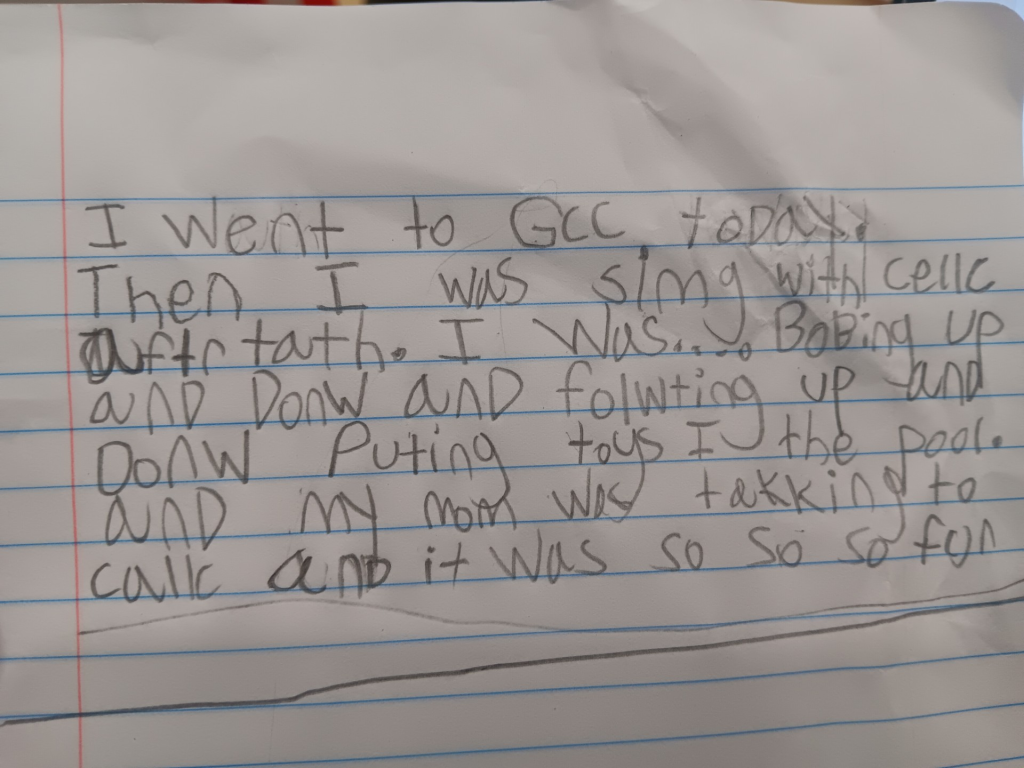 I went to GCC today.
Then I was simg with cellc
aftr tath. I was..... BoBing up
anD DonW anD folwting up and
DonW Puting toys I the pool.
anD my mom was takking to
callc and it was so so so fon